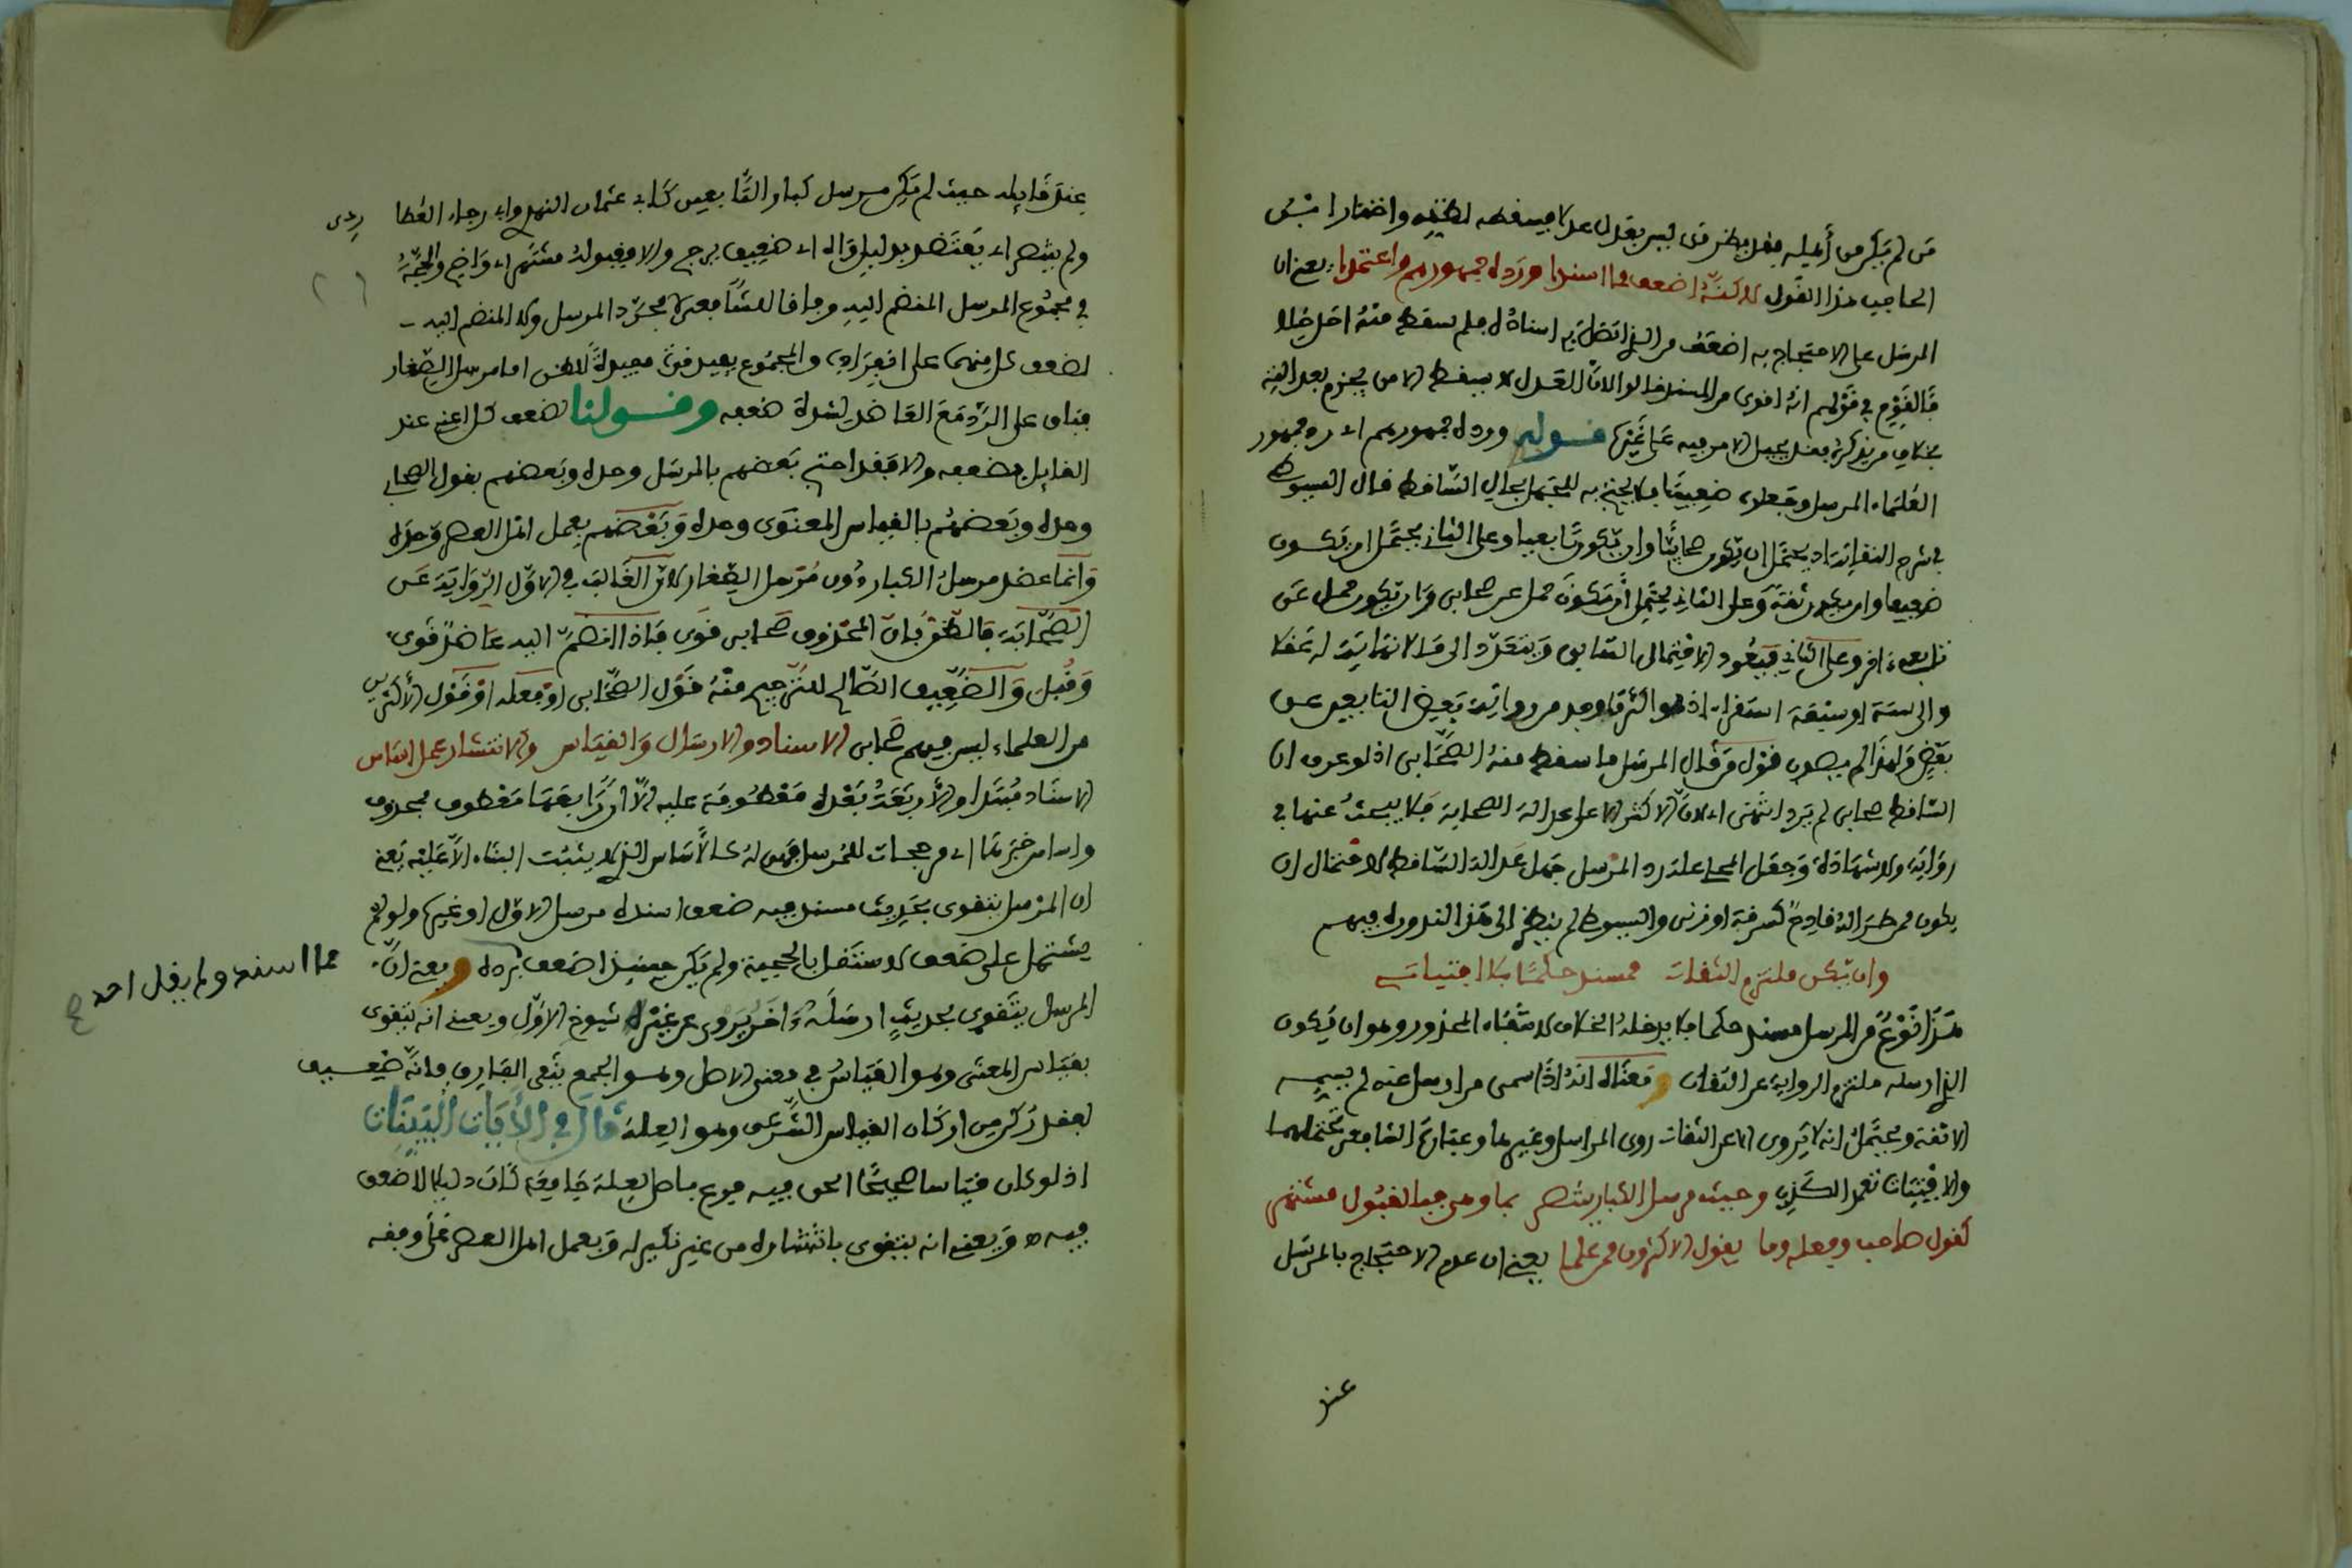 من لم يكن من أهليه فقد يظن من ليس بعدل عدلا فيسقطه لظنه واختار ابن
الحاجب هذا القول لاكنه اضعف مما اسندا ورده جمهورهم واعتمدا يعني ان
المرسل على الاحتجاج به اضعف من الذي اتصل به اسناده فلم يسقط منه احد خلافا
لقوم في قولهم انه اقوى من المسند قالوا لان العدل لا يسقط الا من يجزم بعدالته
بخلاف من يذكره فقد يحيل الامر فيه على غيره قوله ورده جمهورهم اي رد جمهور
العلماء المرسل وجعلوه ضعيفا فلا يحتج به للجهل بحال الساقط قال السيوطي
في شرح النقاية اذ يحتمل ان يكون صحابيا وان يكون تابعيا وعلى الثاني يحتمل ان يكون
ضعيفا وان يكون ثقة وعلى الثاني يحتمل أن يكون حمل عن صحابي وان يكون حمل عن
تابعي آخر وعلى الثاني فيعود الاحتمال السابق ويتعدد الى ما لا نهاية له عقلا
والى ستة او سبعة استقراء اذ هو اكثر ما وجد من رواية بعض التابعين عن
بعض ولهذا لم يصوب قول من قال المرسل ما سقط منه الصحابي اذ لو عرف ان
الساقط صحابي لم يرد انتهى اي لان الاكثر على عدالة الصحابة فلا يبحث عنها في
رواية ولا شهادة وجعل المحلي علة رد المرسل جهل عدالة الساقط لاحتمال ان
يكون ممن طرا له قادح كسرقة او زنى والسيوطي لم ينظر الى هذا لندوره فيهم
وان يكن ملتزم الثقات فمسند حكما بلا افتيات
هذا نوع من المرسل مسند حكما فلا يدخله الخلاف لانتفاء المحذور وهو ان يكون
الذي ارسله ملتزم الرواية عن الثقات ومعناه انه اذا سمى من ارسل عنه لم يسم
الا ثقة ويحتمل انه لا يروي الا عن الثقات روى المراسل وغيرها وعبارة الشافعي تحتملهما
والافتيات تعمد الكذب وحيث مرسل الكبار ينتصر بما وهي جيد القبول مشتهر
كقول صاحب وفعله وما يقول الاكثرون من علما يعني ان عدم الاحتجاج بالمرسل
عند
عند قائله حيث لم يكن مرسل كبار التابعين كابي عثمان النهدي وابي رجاء العطا
ردي
ولم ينتصر اي يعتضد بدليل واه اي ضعيف يرجح والا فقبوله مشتهر اي واضح والحجة
في مجموع المرسل المنضم اليه وفاقا للشافعي لا مجرد المرسل ولا المنضم اليه
لضعف كل منهما على انفراده والمجموع يفيد قوة مفيدة للظن اما مرسل الصغار
فباق على الرد مع العاضد لشدة ضعفه وقولنا ضعف كل اعني عند
القايل بضعفه والا فقد احتج بعضهم بالمرسل وحده وبعضهم بقول الصحابي
وحده وبعضهم بالقياس المعنوي وحده وبعضهم بعمل اهل العصر وحده
وانما عضد مرسل الكبار دون مرسل الصغار لان الغالب في الاول الرواية عن
الصحابة فالظن بان المحذوف صحابي قوي فاذا انضم اليه عاضد قوي
وقبل والضعيف الصالح للترجيح منه قول الصحابي او فعله او قول الاكثرين
من العلماء ليس فيهم صحابي الاسناد والارسال والقياس والانتشار عمل اساس
الاسناد مبتدا والأربعة بعده معطوفة عليه الا ان رابعها معطوف بمحذوف
واساس خبرها اي مرجحات للمرسل فهي له كالاساس الذي لا يثبت البناء الا عليه يعني
ان المرسل يتقوى بحديث مسند فيه ضعف اسنده مرسل الاول او غيره ولو لم
يشتمل على ضعف لاستقل بالحجية ولم يكن حينئذ اضعف برده ويعني ان
مما اسند ولم يقل احد
المرسل يتقوى بحديث ارسله اخر يروي عن غير شيوخ الاول ويعني انه يتقوى
بقياس المعنى وهو القياس في معنى الاصل وهو الجمع بنفي الفارق فانه ضعيف
لفقد ركن من اركان القياس الشرعي وهو العلة قال في الآيات البينات
اذ لو كان قياسا صحيحا الحق فيه فرع باصل لعلة جامعة كان دليلا لا ضعف
فيه ه ويعني انه يتقوى بانتشاره من غير نكير له وبعمل اهل العصر على وفقه